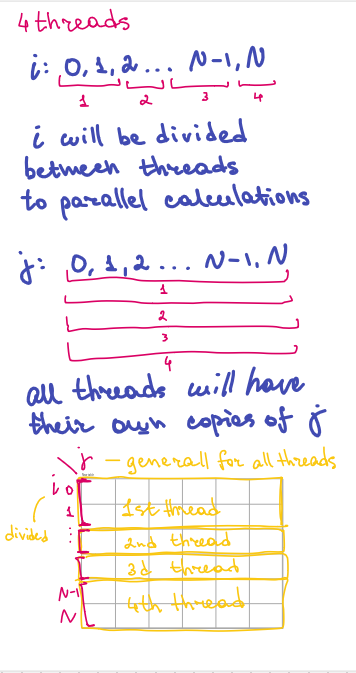 4 threads
i: 0, 1, 2 ... N-1, N
1 2 3 4
i will be divided
between threads
to parallel calculations
j: 0, 1, 2 ... N-1, N
1
2
3
4
all threads will have
their own copies of j
j - generall for all threads
i 0
1 1st thread
divided : 2nd thread
3d thread
N-1 4th thread
N